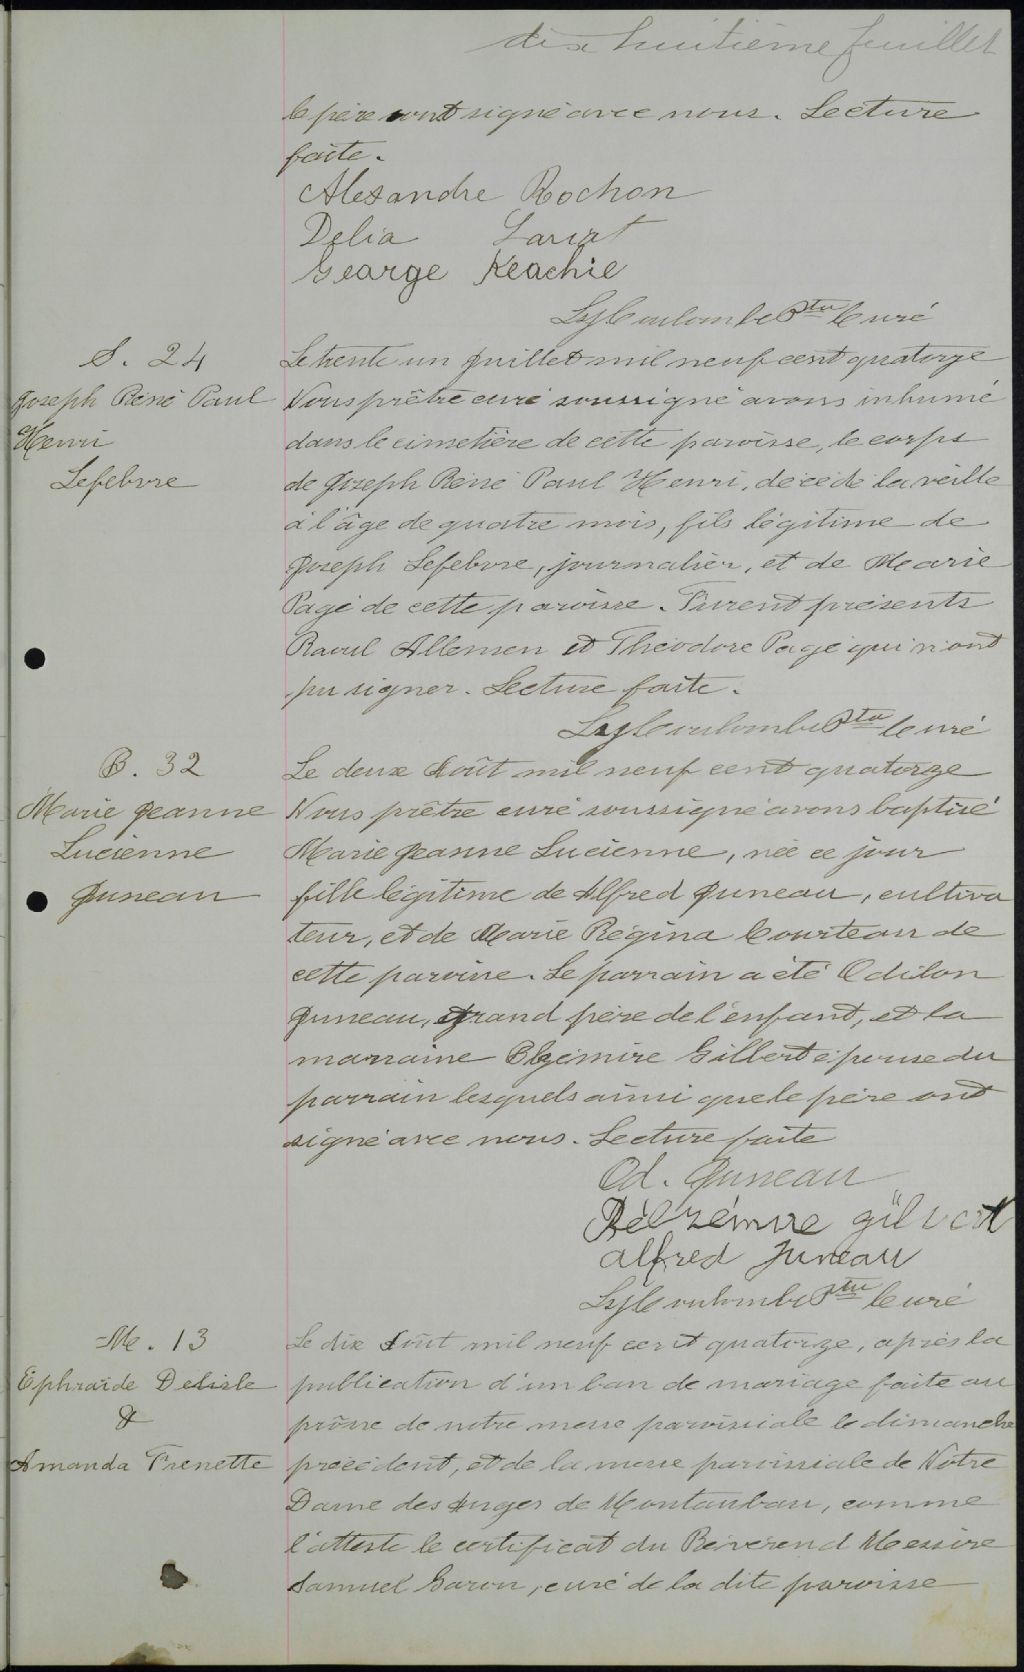 dix huitième feuillet
le père ont signé avec nous. Lecture
faite.
Alexandre Rochon
Delia
George Keachie
Ptre Curé
S. 24
Joseph René Paul
Henri
Lefebvre
Le trente un Juillet mil neuf cent quatorze
Nous prêtre curé soussigné avons inhumé
dans le cimetière de cette paroisse, le corps
de Joseph René Paul Henri, décédé la veille
à l'âge de quatre mois, fils légitime de
Joseph Lefebvre, journalier, et de Marie
Pagé de cette paroisse. Furent présents
Raoul et Théodore Pagé qui n'ont
pu signer. Lecture faite.
Ptre Curé
B. 32
Marie Jeanne
Lucienne
Juneau
Le deux Août mil neuf cent quatorze
Nous prêtre curé soussigné avons baptisé
Marie Jeanne Lucienne, née ce jour
fille légitime de Alfred Juneau, cultiva
teur, et de Marie Régina Courteau de
cette paroisse. Le parrain a été Odilon
Juneau, grand père de l'enfant, et la
marraine Belzémire Gilbert épouse du
parrain lesquels ainsi que le père ont
signé avec nous. Lecture faite
Od. Juneau
Bélzémire gilbert
alfred Juneau
Ptre Curé
M. 13
Ephraïde Delisle
&
Amanda Frenette
Le dix Août mil neuf cent quatorze, après la
publication d'un ban de mariage faite au
prône de notre messe paroissiale le dimanche
précédent, et de la messe paroissiale de Notre
Dame des Anges de Montauban, comme
l'atteste le certificat du Révérend Messire
Samuel Garon, curé de la dite paroisse